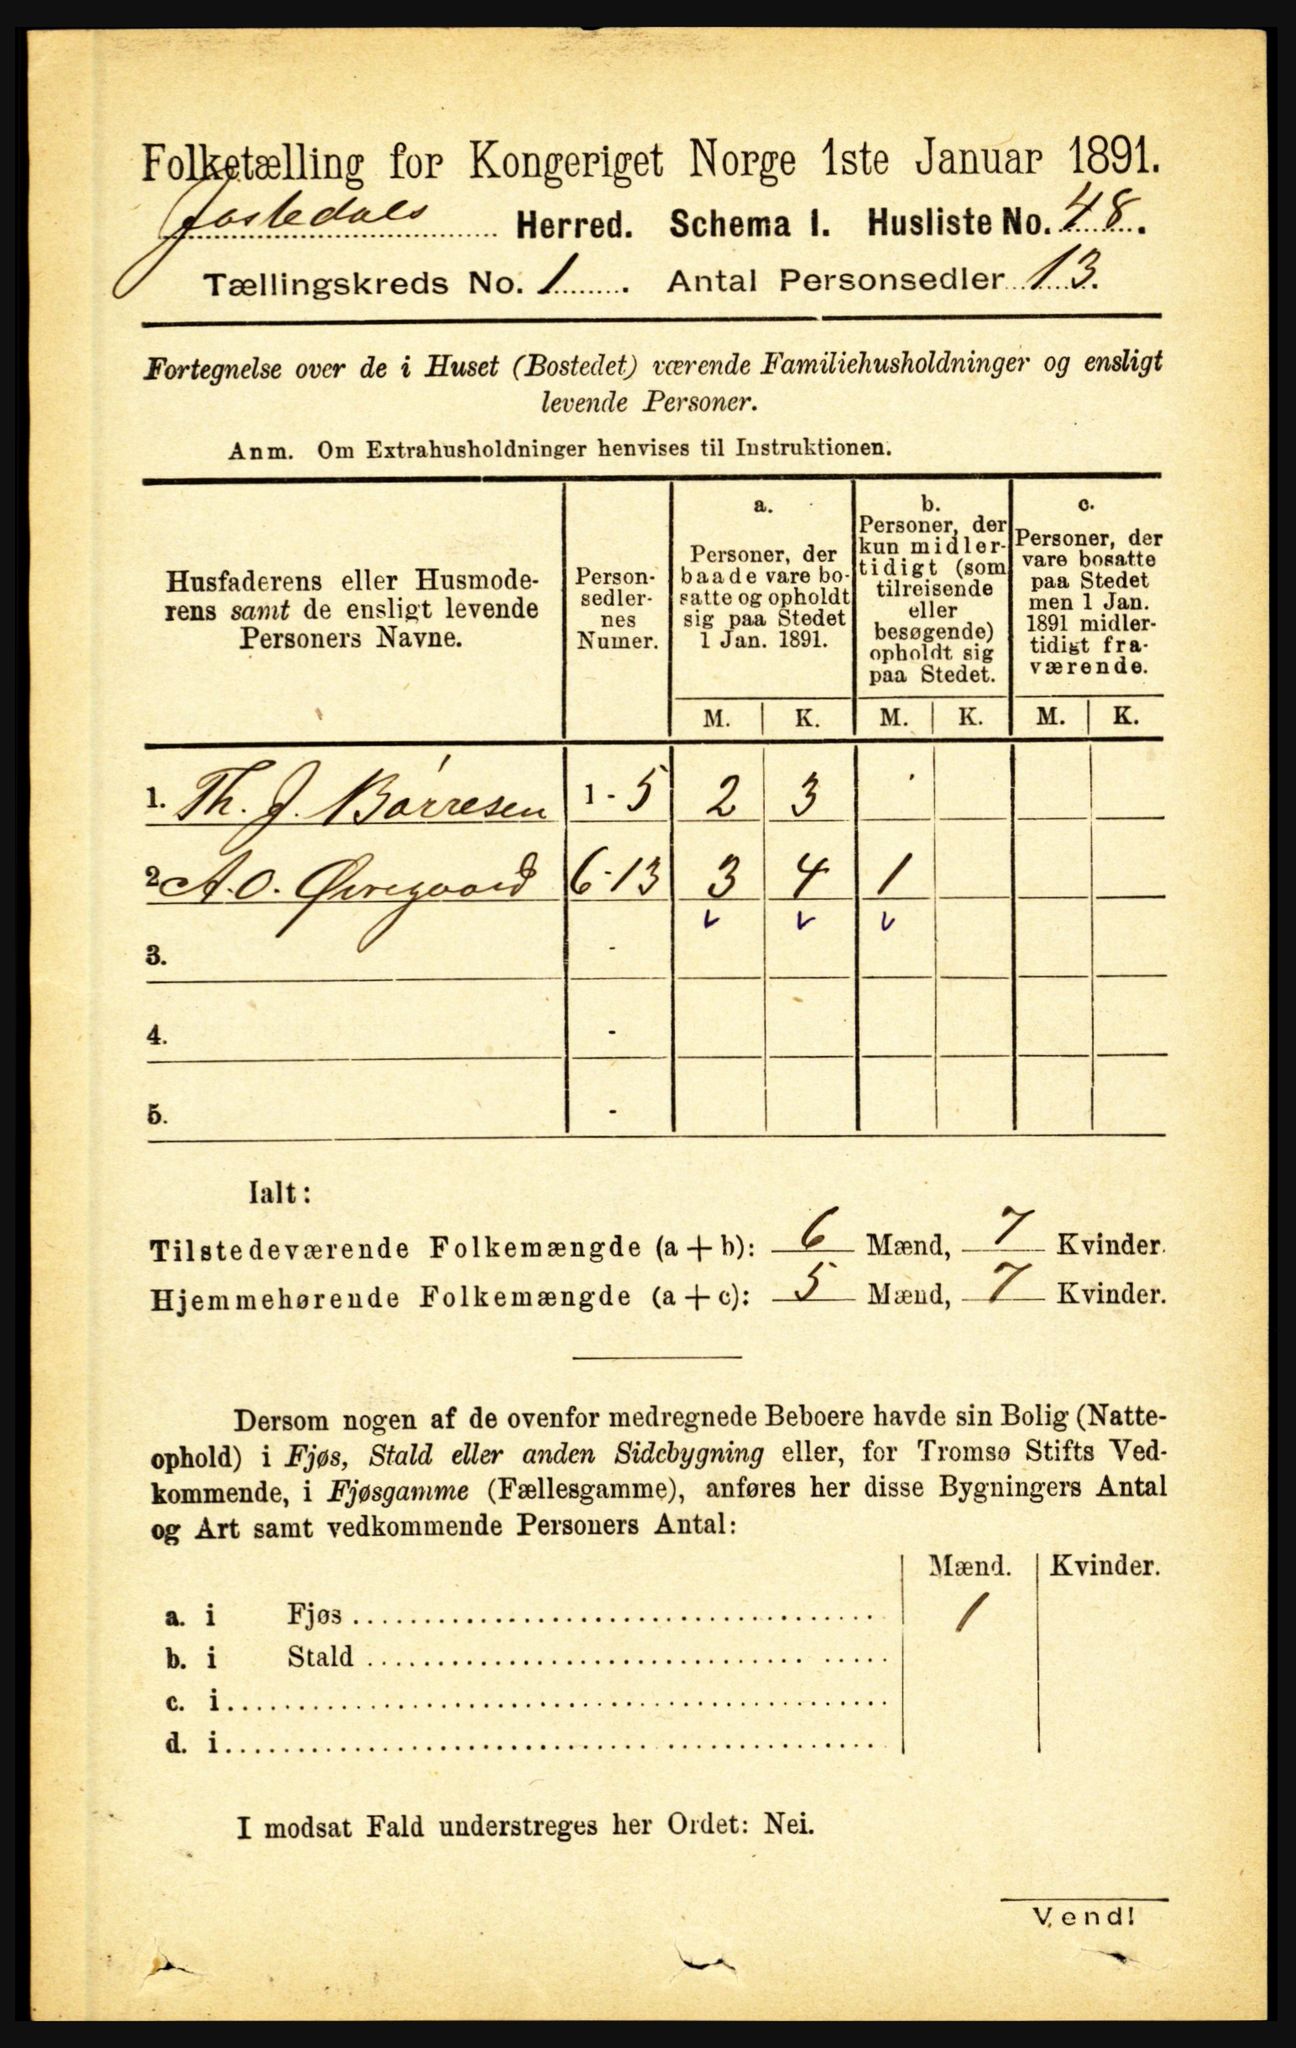 Folketælling for Kongeriget Norge 1ste Januar 1891.
Jostedals Herred. Schema I. Husliste No. 48.
Tællingskreds No. 1. Antal Personsedler 13.
Fortegnelse over de i Huset (Bostedet) værende Familiehusholdninger og ensligt
levende Personer.
Anm. Om Extrahusholdninger henvises til Instruktionen.
Husfaderens eller Husmode-
rens samt de ensligt levende
Personers Navne.
Person-
sedler-
nes
Numer.
a.
Personer, der
baade vare bo-
satte og opholdt
sig paa Stedet
1 Jan. 1891.
b.
Personer, der
kun midler-
tidigt (som
tilreisende
eller
besøgende)
opholdt sig
paa Stedet.
c.
Personer, der
vare bosatte
paa Stedet
men 1 Jan.
1891 midler-
tidigt fra-
værende.
M. K. M. K. M. K.
1. Th. J. Børresen 1 - 5 2 3
2. A. O. Øvregaard 6-13 3 4 1
3. -
4. -
5. -
Ialt:
Tilstedeværende Folkemængde (a + b): 6 Mænd, 7 Kvinder.
Hjemmehørende Folkemængde (a + c): 5 Mænd, 7 Kvinder.
Dersom nogen af de ovenfor medregnede Beboere havde sin Bolig (Natte-
ophold) i Fjøs, Stald eller anden Sidebygning eller, for Tromsø Stifts Ved-
kommende, i Fjøsgamme (Fællesgamme), anføres her disse Bygningers Antal
og Art samt vedkommende Personers Antal:
Mænd. Kvinder.
a. i Fjøs 1
b. i Stald
c. i
d. i
I modsat Fald understreges her Ordet: Nei.
Vend!